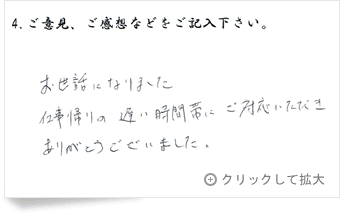 4.ご意見、ご感想などをご記入下さい。
お世話になりました
仕事帰りの遅い時間帯にご対応いただき
ありがとうございました。
クリックして拡大